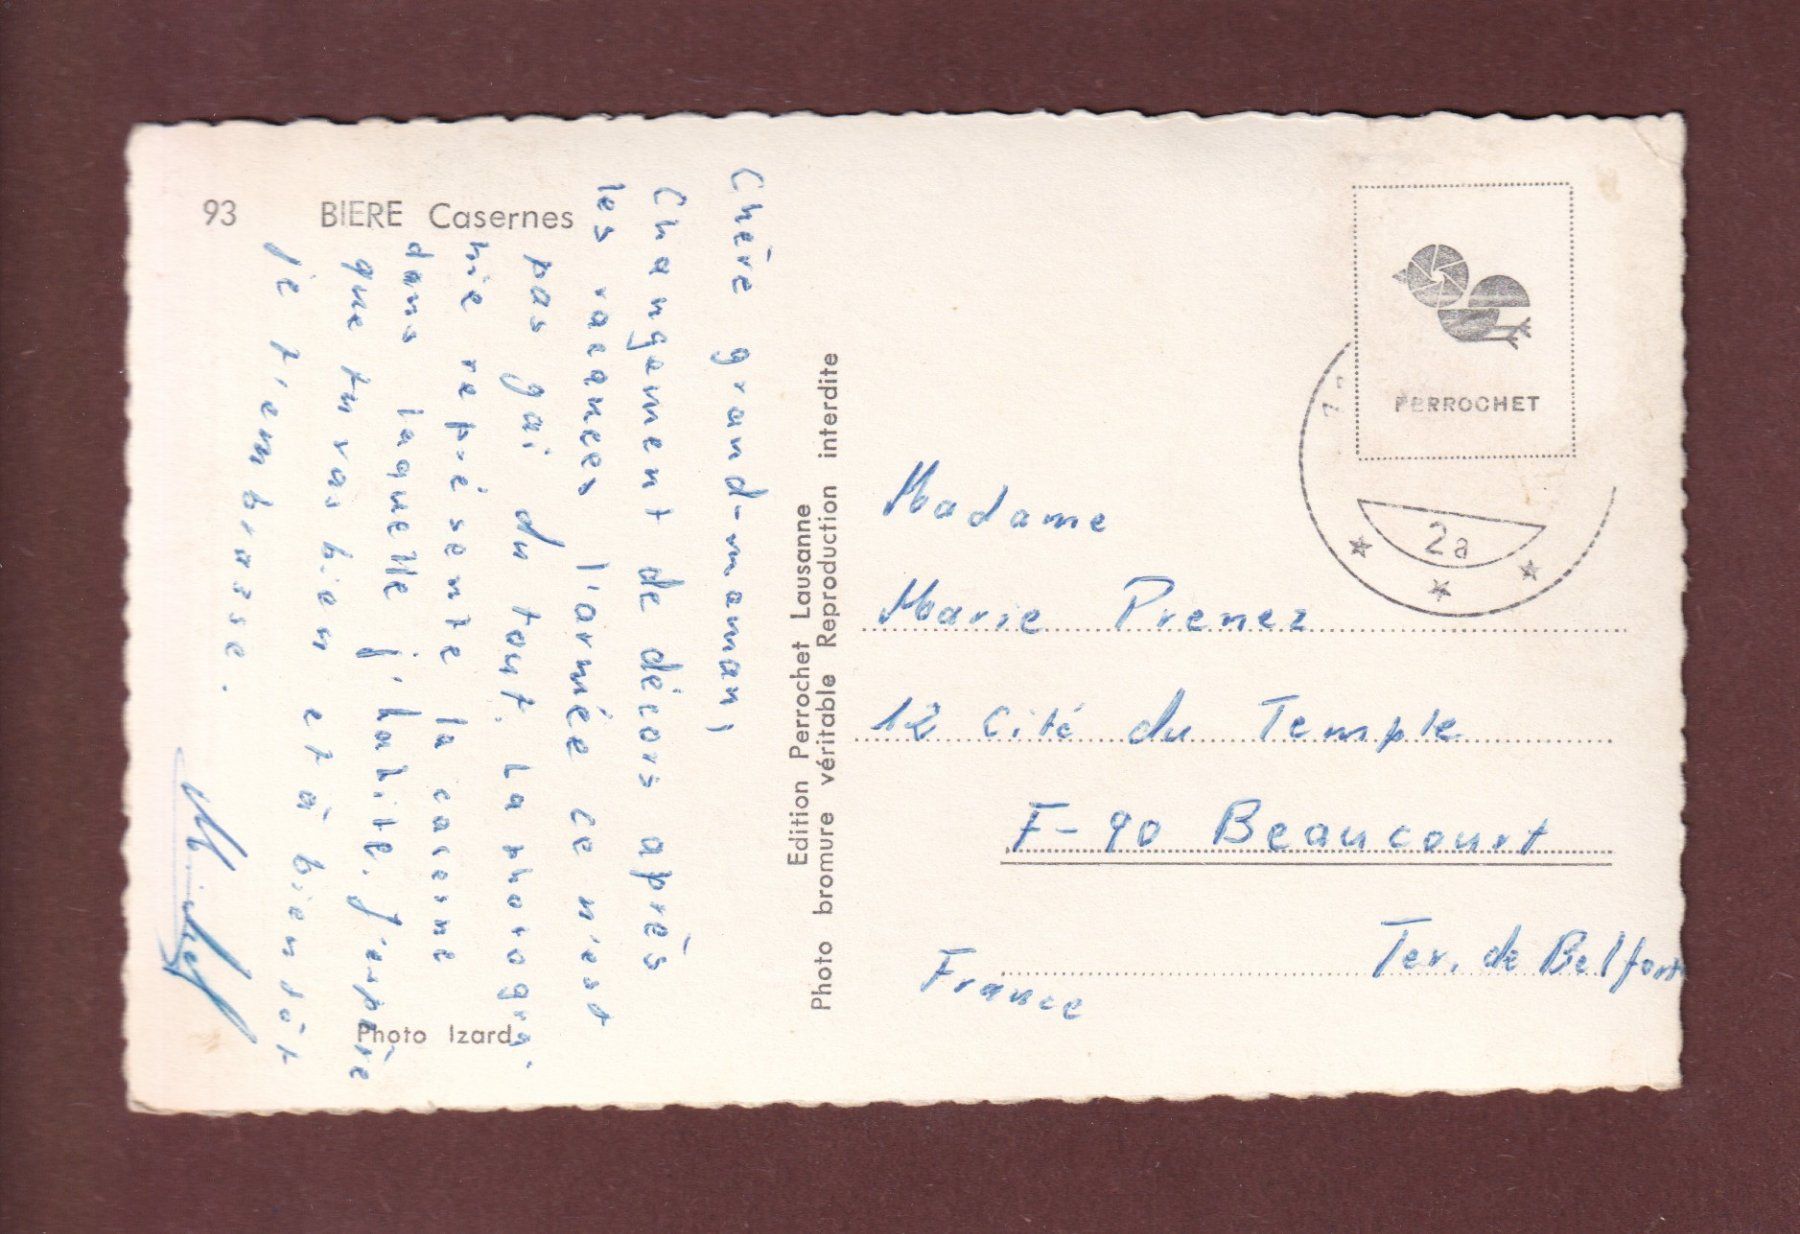 93 BIERE Casernes
Chère grand-maman,
Changement de décors après
les vacances l'armée ce n'est
pas gai du tout. La photogra-
hie représente la caserne
dans laquelle j'habite. J'espère
que tu vas bien et à bientôt
je t'embrasse.
Photo Izard
Edition Perrochet Lausanne
Photo bromure véritable Reproduction interdite
PERROCHET
2a
Madame
Marie Prenez
12 Cité du Temple
F-90 Beaucourt
Ter. de Belfort
France